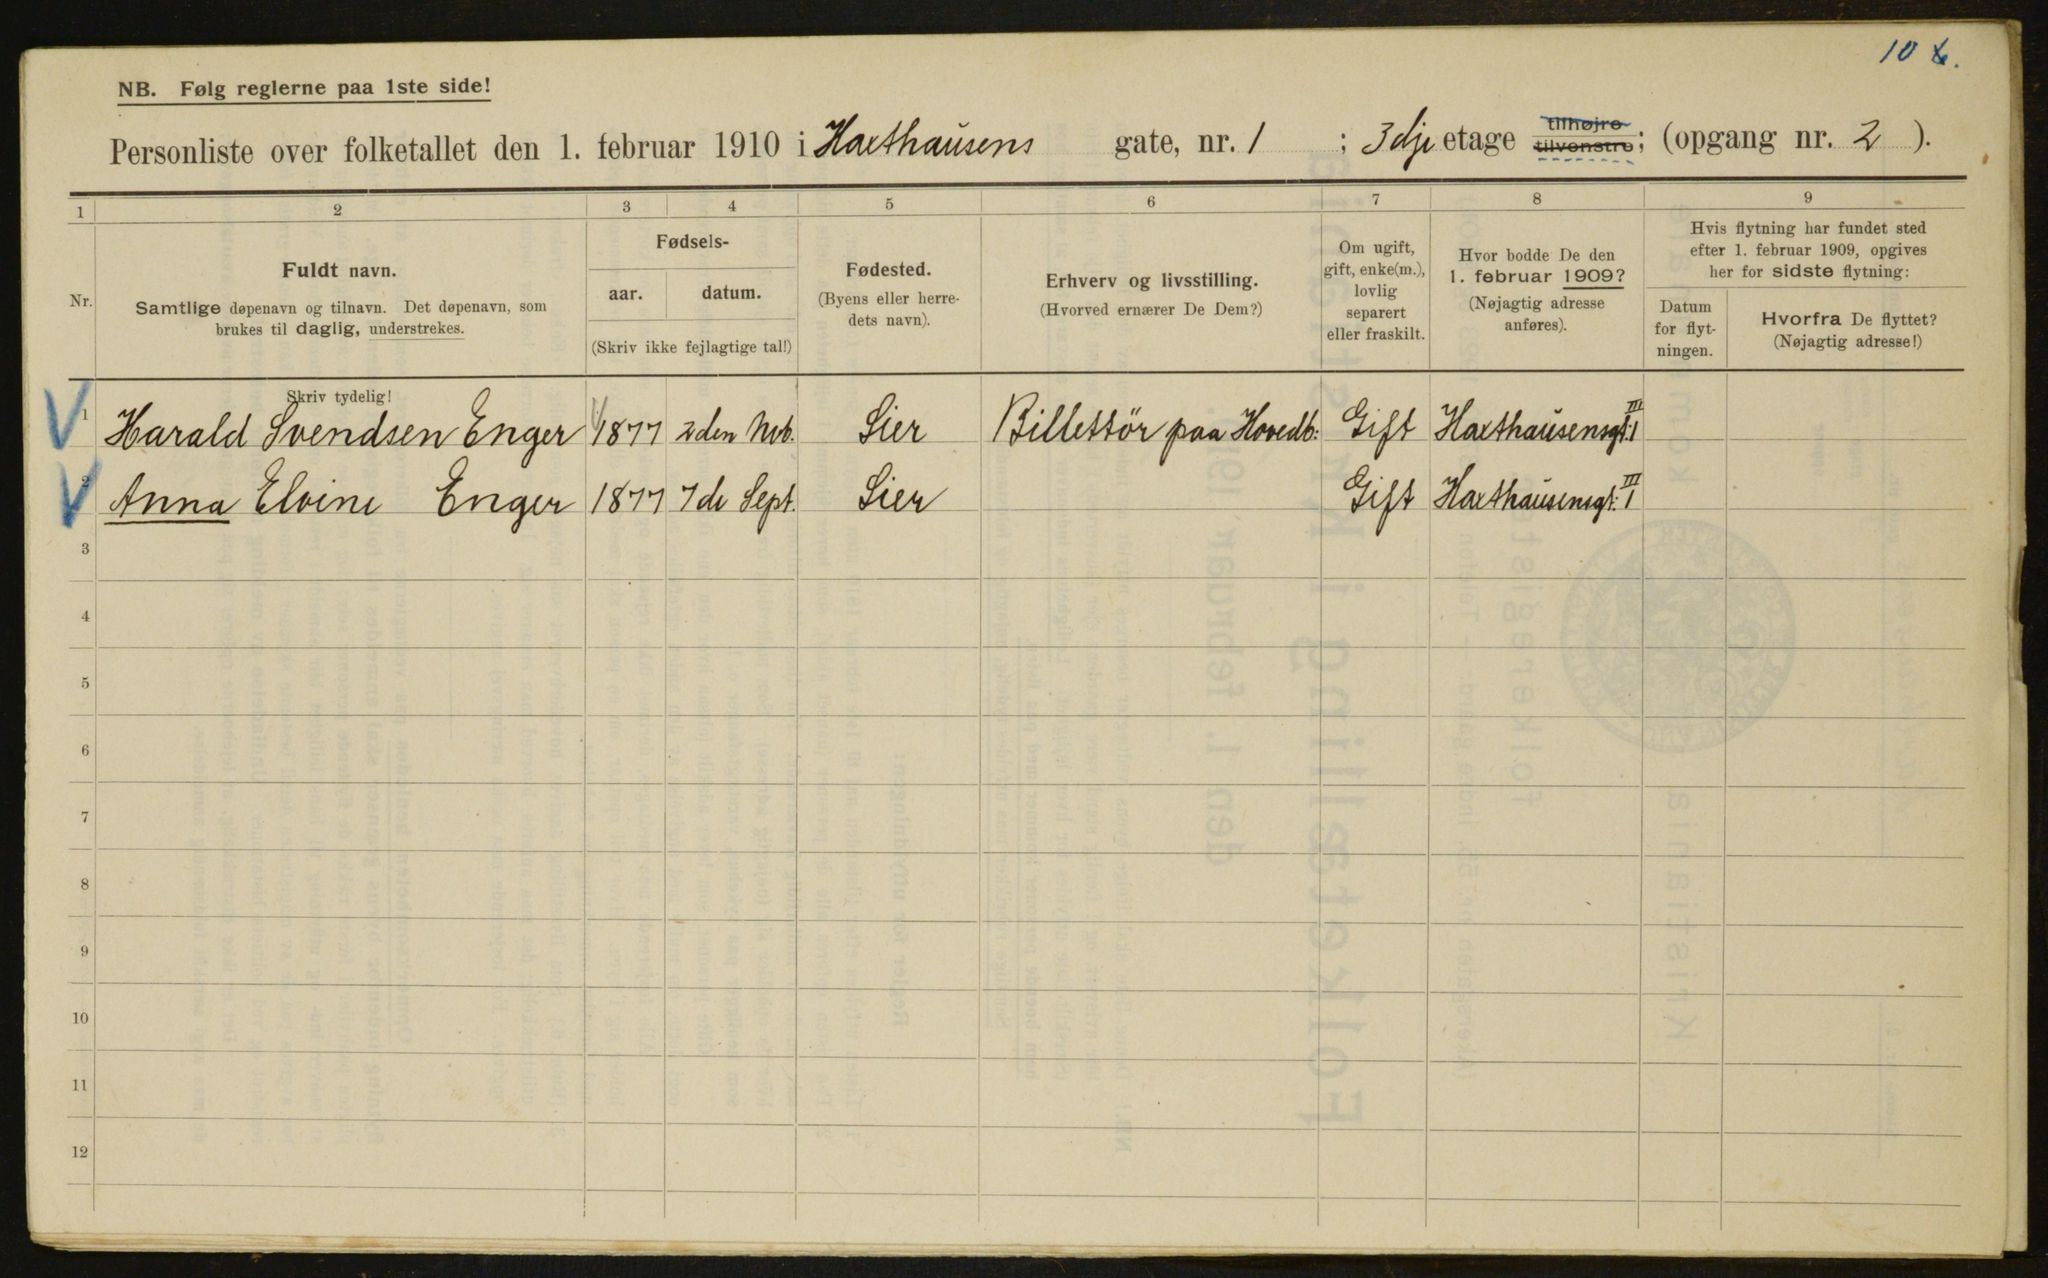 10
NB. Følg reglerne paa 1ste side!
Personliste over folketallet den 1. februar 1910 i Haxthausens gate, nr. 1 ; 3dje etage tilhøjre tilvenstre; (opgang nr. 2 ).
1 2 3 4 5 6 7 8 9
Nr.
Fuldt navn.
Samtlige døpenavn og tilnavn. Det døpenavn, som
brukes til daglig, understrekes.
Fødsels-
aar. datum.
(Skriv ikke fejlagtige tal!)
Fødested.
(Byens eller herre-
dets navn).
Erhverv og livsstilling.
(Hvorved ernærer De Dem?)
Om ugift,
gift, enke(m.),
lovlig
separert
eller fraskilt.
Hvor bodde De den
1. februar 1909?
(Nøjagtig adresse
anføres).
Hvis flytning har fundet sted
efter 1. februar 1909, opgives
her for sidste flytning:
Datum
for flyt-
ningen.
Hvorfra De flyttet?
(Nøjagtig adresse!)
Skriv tydelig!
1 Harald Svendsen Enger 1877 2den Nvb. Lier Billettör paa Hovedb: Gift Haxthausensgt. 1 III
2 Anna Elvine Enger 1877 7de Sept. Lier Gift Haxthausensgt. 1 III
3
4
5
6
7
8
9
10
11
12